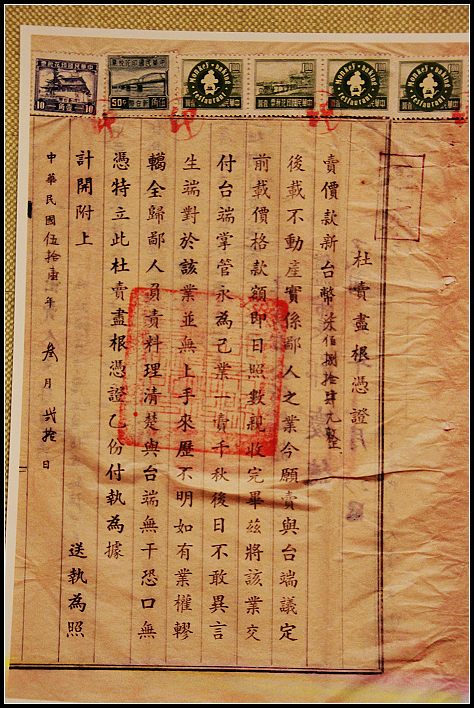 票稅花印國民華中
10 壹角 10
票稅花印國民華中
50
1.00
Restaurant
1.00
1.00
Restaurant
1.00
Restaurant
杜賣盡根憑證
賣價款新台幣柒佰捌拾肆元整
後載不動產實係鄙人之業今願賣與台端議定
前載價格款額即日照數親收完畢茲將該業交
付台端掌管永為己業一賣千秋後日不敢異言
生端對於該業並無上手來歷不明如有業權轇
轕全歸鄙人負責料理清楚與台端無干恐口無
憑特立此杜賣盡根憑證乙份付執為據
計開附上
送執為照
中華民國伍拾壹年叁月貳拾日